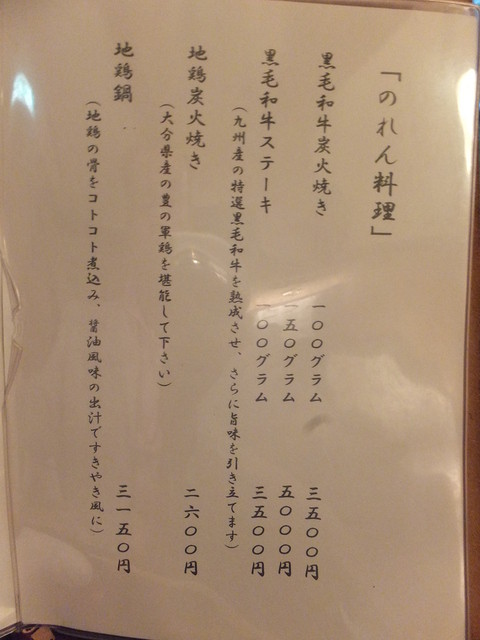 「のれん料理」
黒毛和牛炭火焼き 一〇〇グラム 三五〇〇円
一五〇グラム 五〇〇〇円
黒毛和牛ステーキ 一〇〇グラム 三五〇〇円
（九州産の特選黒毛和牛を熟成させ、さらに旨味を引き立てます）
地鶏炭火焼き 二六〇〇円
（大分県産の豊の軍鶏を堪能して下さい）
地鶏鍋 三一五〇円
（地鶏の骨をコトコト煮込み、醤油風味の出汁ですきやき風に）